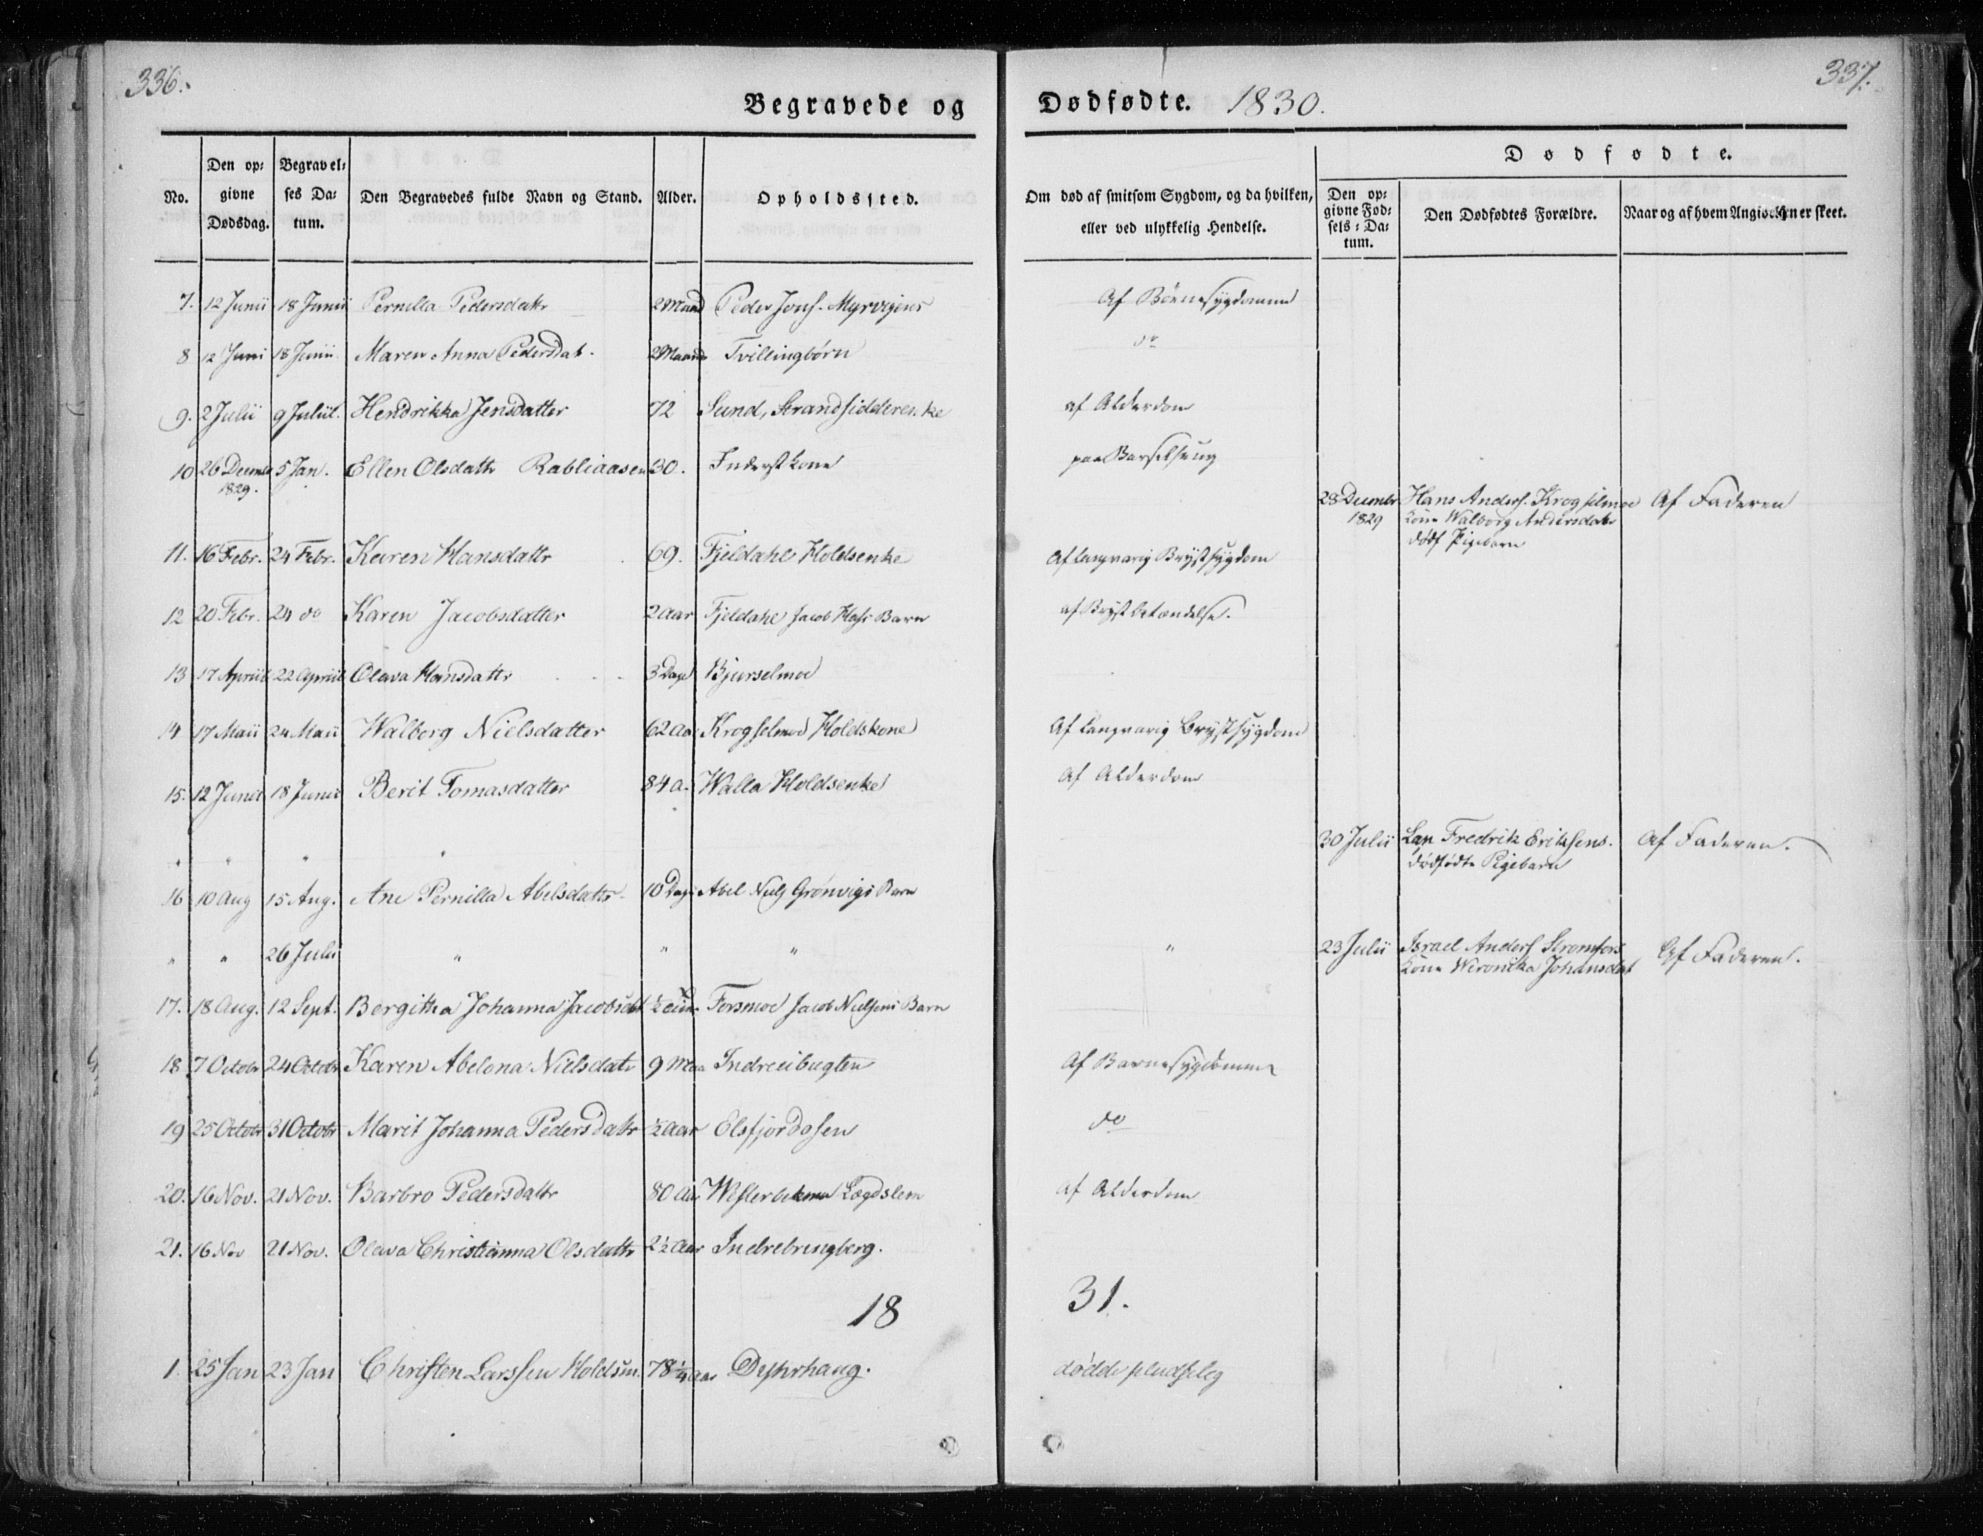 336.
337.
Begravede og Dødfødte. 1830.
No. | Den op: givne Dødsdag. | Begravel: ses Da: tum. | Den Begravedes fulde Navn og Stand. | Alder. | Opholdssted. | Om død af smitsom Sygdom, og da hvilken, eller ved ulykkelig Hendelse. | Dødfødte. | Den op: givne Fød: sels: Da: tum. | Den Dødfødtes Forældre. | Naar og af hvem Angivelsen er skeet.
7. 12 Junii 18 Junii Pernilla Pedersdattr 2 Maand Peder Af Børnesygdomme
8 12 Juni 18 Junii Maren Anna Pedersdat. 2 Maand Tvillingbørn do
9. 2 Julii 9 Julii Hendrikka Jensdatter 72 Sund, Strandsidderenke af Alderdom
10 26 Decembr 5 Jan. Ellen Olsdattr Rabliaasen 30. Inderst kone paa Barselseng
1829.
28 Decembr Hans Anders. Krogselmoe Af Faderen
1829 Kone Walborg Andersdatr
dødf Pigebarn
11. 16 Febr. 24 Febr. Karen Hansdattr 69. Fjeldahl Holdsenke Af langvarig Brystsygdom
12 20 Febr. 24 do Karen Jacobsdatter 2 aar Fjeldahl Jacob Barn af Brystbetændelse.
13 17 Apriil 22 Apriil Olava Hansdattr 3 Dage Bjurselmoe
14 17 Maii 24 Maii Walborg Nielsdatter 62 aar Krogselmoe Holdskone Af langvarig Brystsygdom
15. 12 Junii 18 Junii Berit Tomasdatter 84 a. Walla Holdsenke Af Alderdom
" " " " 30 Julii Lap Fredrik Eriksens. Af Faderen.
dødfødte Pigebarn
16 10 Aug 15 Aug. Ane Pernilla Abelsdattr 10 Dage Abel Niels Grønvigs Barn
" " 26 Julii " " " " 23 Julii Israel Anders Strømfors Af Faderen.
Kone Weronika Johansdat
17. 18 Aug. 12 Sept. Bergitha Johanna Jacobsdat ½ Forsmoe Jacob Nielsens Barn
18 7 Octobr 24 Octobr Karen Abelona Nielsdatr 9 Maa Indreibugten Af Barnesygdomme
19 25 Octobr 31 Octobr Marit Johanna Pedersdattr ½ aar Elsfjordosen do
20. 16 Nov. 21 Nov. Barbro Pedersdattr 80 aar Lægdslem af Alderdom
21. 16 Nov 21 Nov. Olava Christianna Olsdattr 2½ aar Indrebringberg.
18 31.
1 25 Jan 23 Jan Christen Larssen 78¼ aar døde pludselig